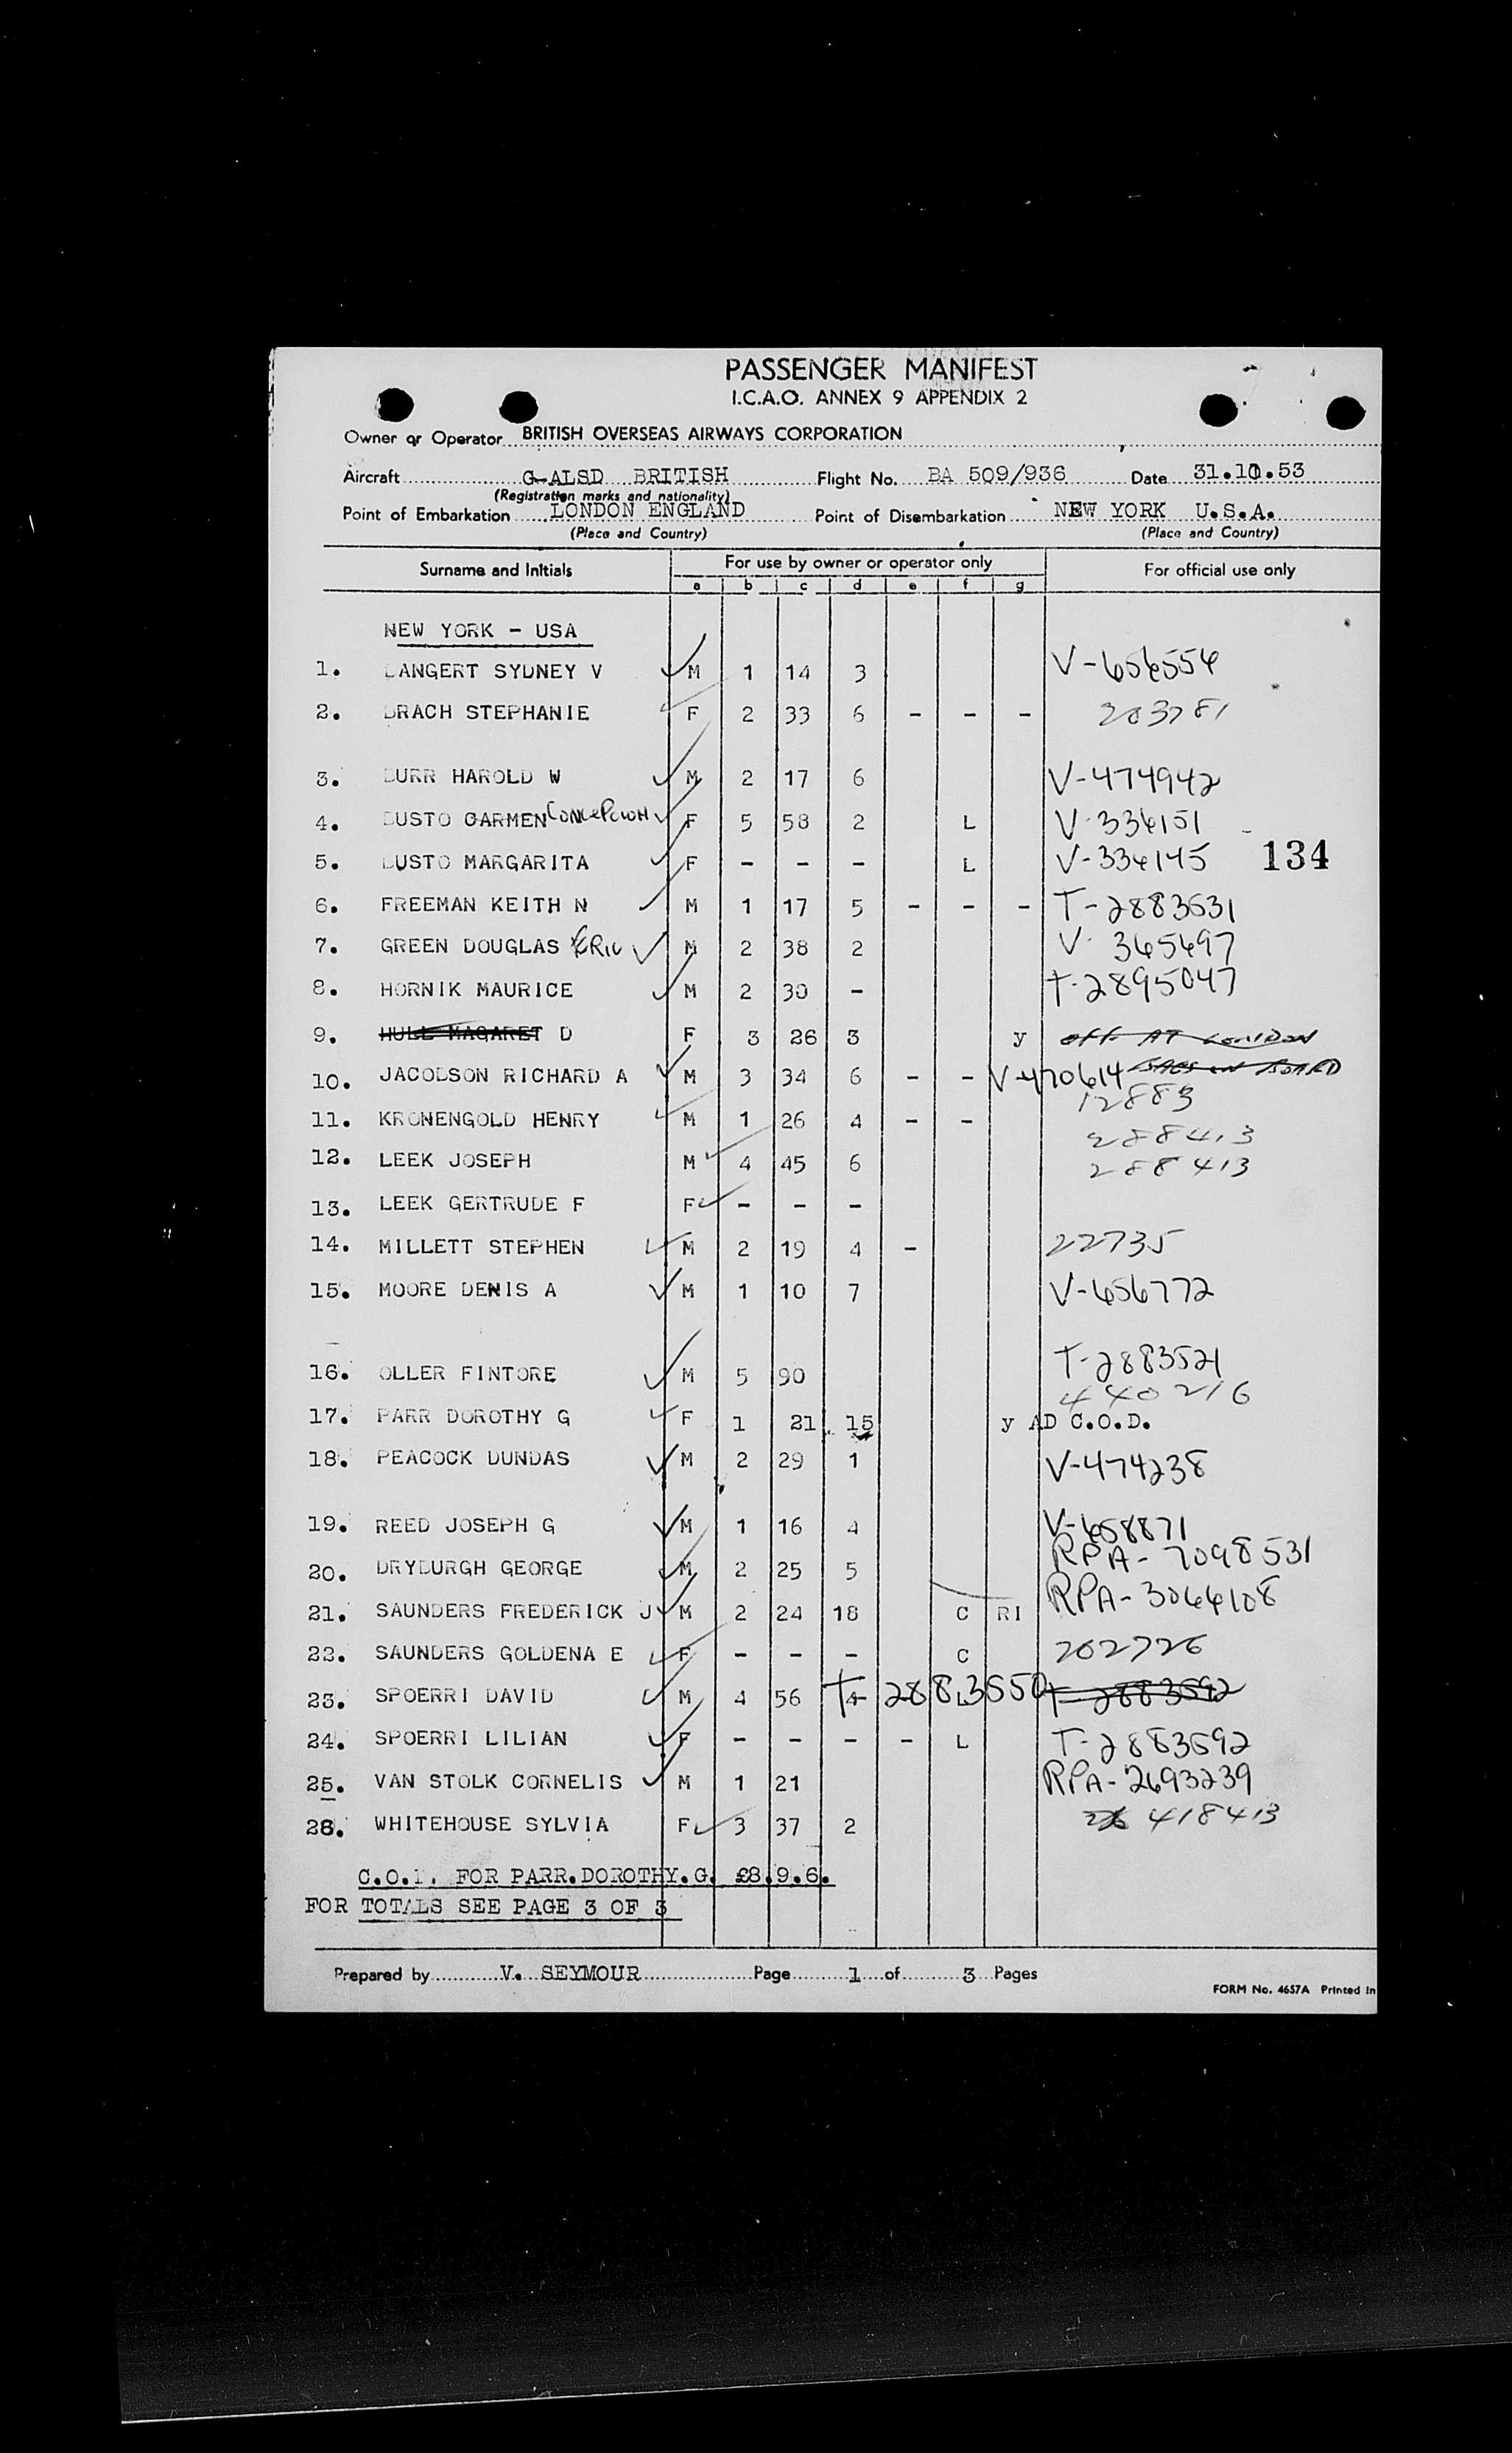 PASSENGER MANIFEST
I.C.A.O. ANNEX 9 APPENDIX 2
Owner or Operator BRITISH OVERSEAS AIRWAYS CORPORATION
Aircraft G-ALSD BRITISH Flight No. BA 509/936 Date 31.10.53
(Registration marks and nationality)
Point of Embarkation LONDON ENGLAND Point of Disembarkation NEW YORK U.S.A.
(Place and Country) (Place and Country)
Surname and Initials For use by owner or operator only For official use only
a b c d e f g
NEW YORK - USA
1. LANGERT SYDNEY V M 1 14 3 V-656554
2. DRACH STEPHANIE F 2 33 6 - - - 203781
3. DURR HAROLD W M 2 17 6 V-474942
4. DUSTO CARMEN CONCEPCION F 5 58 2 L V-336151
134
5. DUSTO MARGARITA F - - - L V-336145
6. FREEMAN KEITH N M 1 17 5 - - - T-2883631
7. GREEN DOUGLAS ERIC M 2 38 2 V-365697
8. HORNIK MAURICE M 2 30 - T-2895047
9. HULL MAGARET D F 3 26 3 y OFF AT LONDON
BAGS ON BOARD
10. JACOLSON RICHARD A M 3 34 6 - - V-470614
12883
11. KRONENGOLD HENRY M 1 26 4 - -
288413
12. LEEK JOSEPH M 4 45 6 288413
13. LEEK GERTRUDE F F - - -
14. MILLETT STEPHEN M 2 19 4 - 22735
15. MOORE DENIS A M 1 10 7 V-656772
16. OLLER FINTORE M 5 90 T-2883521
440216
17. PARR DOROTHY G F 1 21 15 y AD C.O.D.
18. PEACOCK DUNDAS M 2 29 1 V-474238
19. REED JOSEPH G M 1 16 4 V-658871
20. DRYLURGH GEORGE M 2 25 5 RPA-7098531
21. SAUNDERS FREDERICK J M 2 24 18 C RI RPA-3064108
22. SAUNDERS GOLDENA E F - - - C 202726
23. SPOERRI DAVID M 4 56 4 - L T-2883550 T-2883592
24. SPOERRI LILIAN F - - - - L T-2883592
25. VAN STOLK CORNELIS M 1 21 RPA-2693239
26. WHITEHOUSE SYLVIA F 3 37 2 418413
C.O.D. FOR PARR.DOROTHY.G. £8.9.6.
FOR TOTALS SEE PAGE 3 OF 3
Prepared by V. SEYMOUR Page 1 of 3 Pages
FORM No. 4657A Printed in